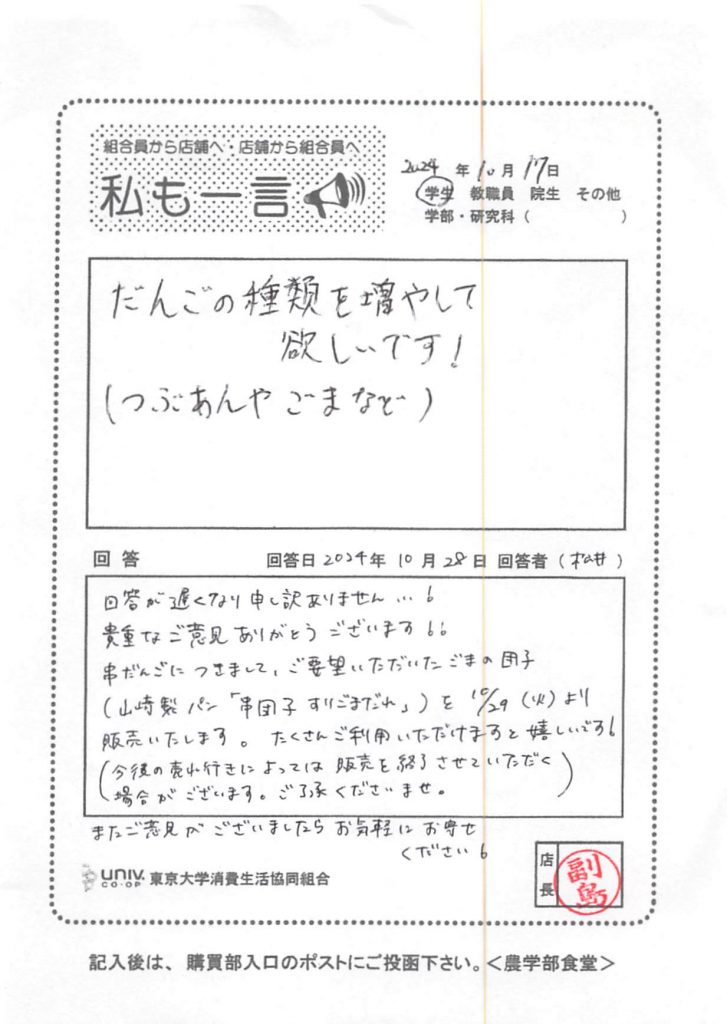 組合員から店舗へ・店舗から組合員へ
私も一言
2024年10月17日
学生 教職員 院生 その他
学部・研究科( )
だんごの種類を増やして
欲しいです!
(つぶあんや ごまなど)
回答 回答日2024年10月28日 回答者(松井)
回答が遅くなり申し訳ありません…!
貴重なご意見ありがとうございます!!
串だんごにつきまして、ご要望いただいたごまの団子
(山崎製パン「串団子 すりごまだれ」)を 10/29(火)より
販売いたします。たくさんご利用いただけますと嬉しいです!
(今後の売れ行きによっては 販売を終了させていただく
場合がございます。ご了承くださいませ。)
またご意見がございましたらお気軽にお寄せ
ください!
UNIV. CO-OP 東京大学消費生活協同組合
店長
副島
記入後は、購買部入口のポストにご投函下さい。<農学部食堂>